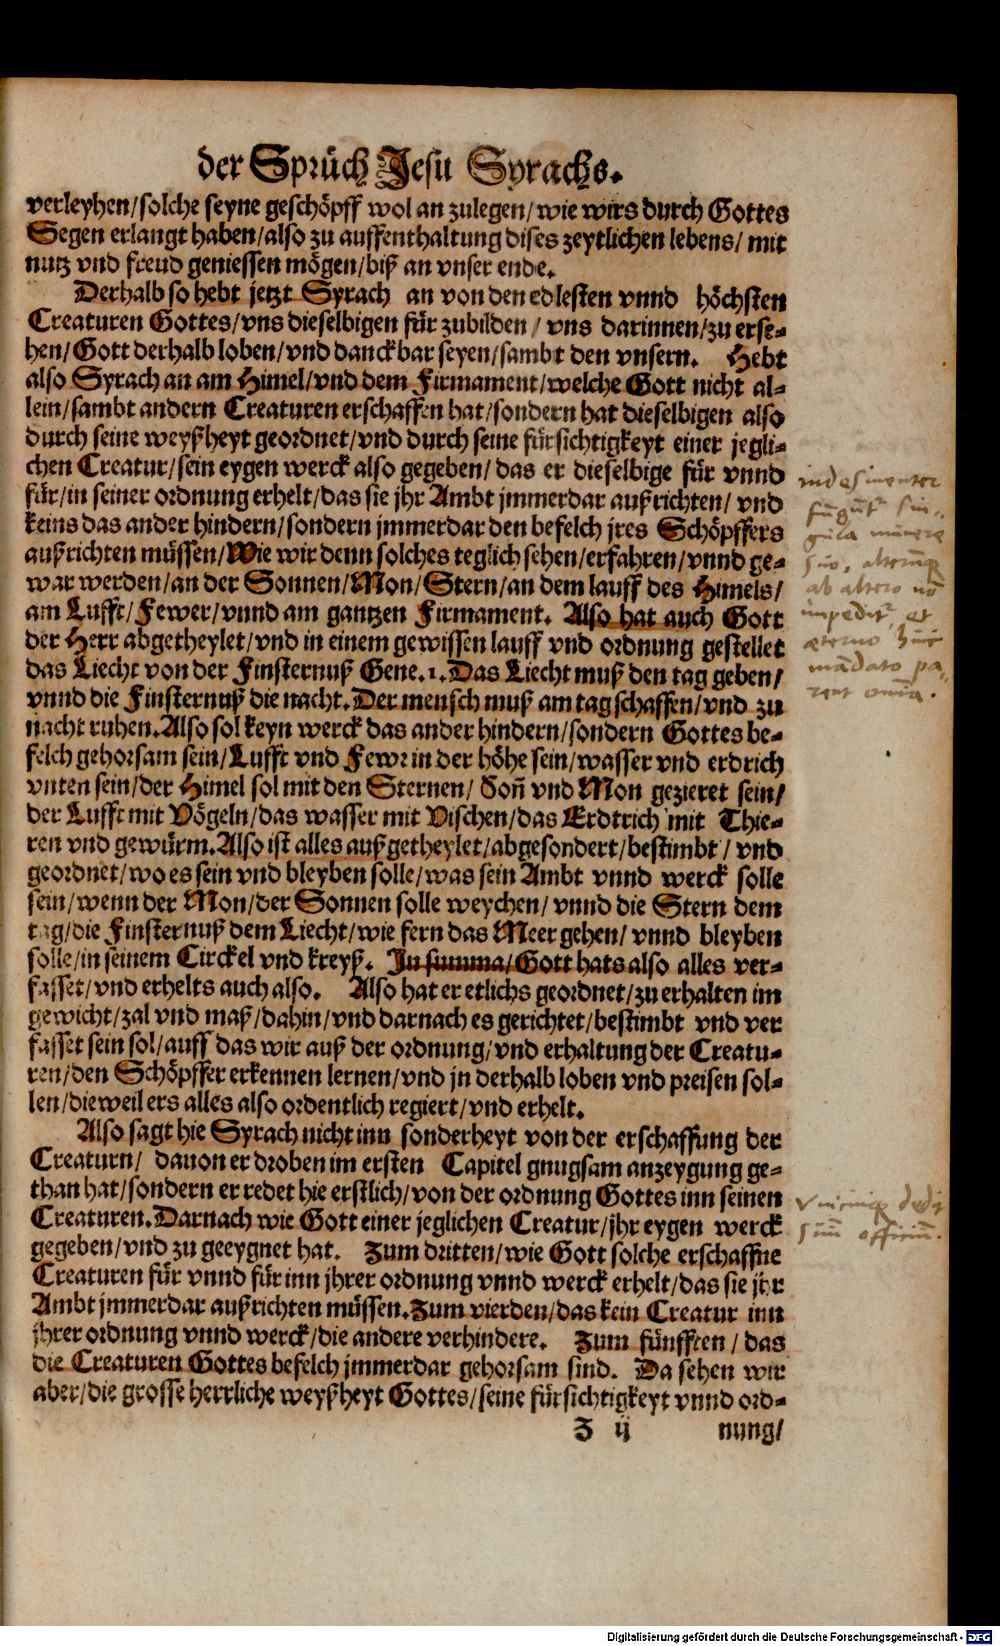 der Sprüch Jesu Syrachs.
verleyhen/solche seyne geschöpff wol an zulegen/wie wirs durch Gottes
Segen erlangt haben/also zu auffenthaltung dises zeytlichen lebens/ mit
nutz vnd freud geniessen mögen/biß an vnser ende.
Derhalb so hebt jetzt Syrach an von den edlesten vnnd höchsten
Creaturen Gottes/vns dieselbigen für zubilden/ vns darinnen/zu erse-
hen/Gott derhalb loben/vnd danckbar seyen/sambt den vnsern. Hebt
also Syrach an am Himel/vnd dem Firmament/welche Gott nicht al-
lein/sambt andern Creaturen erschaffen hat/sondern hat dieselbigen also
durch seine weyßheyt geordnet/vnd durch seine fürsichtigkeyt einer jegli-
chen Creatur/sein eygen werck also gegeben/ das er dieselbige für vnnd
für/in seiner ordnung erhelt/das sie jhr Ambt jmmerdar außrichten/ vnd
keins das ander hindern/sondern jmmerdar den befelch jres Schöpffers
außrichten müssen/Wie wir denn solches teglich sehen/erfahren/vnnd ge-
war werden/an der Sonnen/Mon/Stern/an dem lauff des Himels/
am Lufft/Fewer/vnnd am gantzen Firmament. Also hat auch Gott
der Herr abgetheylet/vnd in einem gewissen lauff vnd ordnung gestellet
das Liecht von der Finsternuß Gene.1.Das Liecht muß den tag geben/
vnnd die Finsternuß die nacht.Der mensch muß am tag schaffen/vnd zu
nacht ruhen.Also sol keyn werck das ander hindern/sondern Gottes be-
felch gehorsam sein/Lufft vnd Fewr in der höhe sein/wasser vnd erdrich
vnten sein/der Himel sol mit den Sternen/ Soñ vnd Mon gezieret sein/
der Lufft mit Vögeln/das wasser mit Vischen/das Erdtrich mit Thie-
ren vnd gewürm.Also ist alles außgetheylet/abgesondert/bestimbt/ vnd
geordnet/wo es sein vnd bleyben solle/was sein Ambt vnnd werck solle
sein/wenn der Mon/der Sonnen solle weychen/ vnnd die Stern dem
tag/die Finsternuß dem Liecht/wie fern das Meer gehen/ vnnd bleyben
solle/in seinem Circkel vnd kreyß. In summa/Gott hats also alles ver-
fasset/vnd erhelts auch also. Also hat er etlichs geordnet/zu erhalten im
gewicht/zal vnd maß/dahin/vnd darnach es gerichtet/bestimbt vnd ver
fasset sein sol/auff das wir auß der ordnung/vnd erhaltung der Creatu-
ren/den Schöpffer erkennen lernen/vnd jn derhalb loben vnd preisen sol-
len/dieweil ers alles also ordentlich regiert/vnd erhelt.
Also sagt hie Syrach nicht inn sonderheyt von der erschaffung der
Creaturn/ dauon er droben im ersten Capitel gnugsam anzeygung ge-
than hat/sondern er redet hie erstlich/von der ordnung Gottes inn seinen
Creaturen.Darnach wie Gott einer jeglichen Creatur/jhr eygen werck
gegeben/vnd zu geeygnet hat. Zum dritten/wie Gott solche erschaffne
Creaturen für vnnd für inn jhrer ordnung vnnd werck erhelt/das sie jhr
Ambt jmmerdar außrichten müssen.Zum vierden/das kein Creatur inn
jhrer ordnung vnnd werck/die andere verhindere. Zum fünfften/ das
die Creaturen Gottes befelch jmmerdar gehorsam sind. Da sehen wir
aber/die grosse herrliche weyßheyt Gottes/seine fürsichtigkeyt vnnd ord-
Z ij nung/
indesinenter
sin-
gula munere
suo,
ab altero
impedit, et
mandato pa-
rent
Digitalisierung gefördert durch die Deutsche Forschungsgemeinschaft - DFG